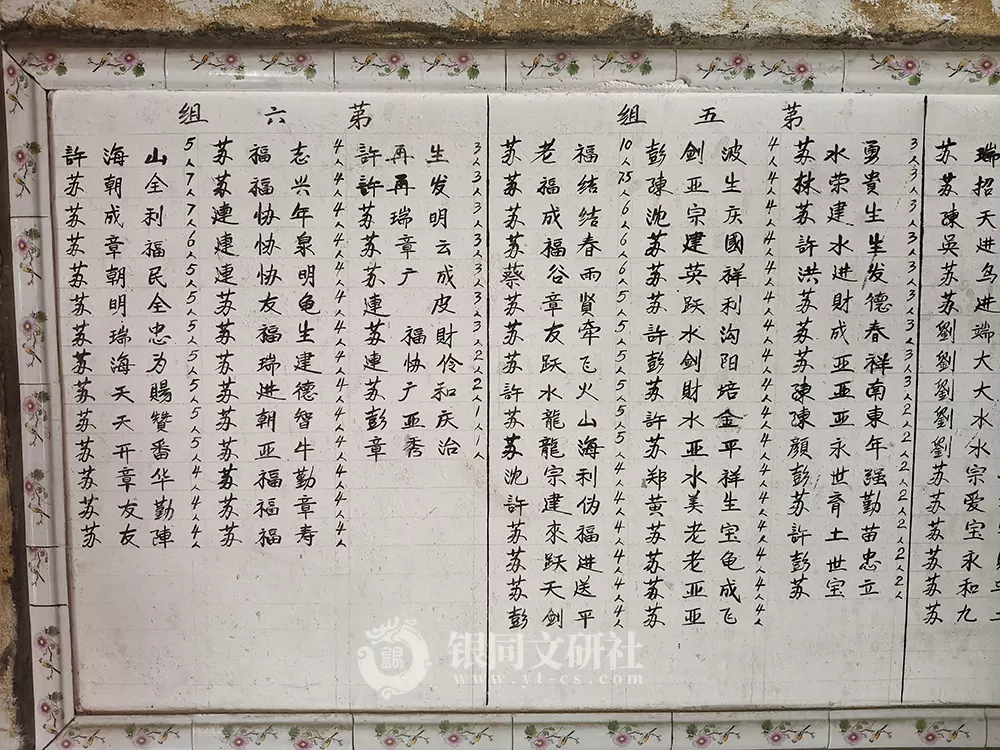 苏瑞
苏招
陳天
吳进
苏鸟
苏进
劉端
劉大
劉大
劉水
劉水
苏宗
苏爱
苏宝
苏永
苏和
苏九
苐五组
苏老福10人
苏福结75人
苏成结6人
苏福春6人
蔡谷雨6人
苏章贤5人
苏友牵5人
苏跃飞5人
許水火5人
苏龍山5人
苏龍海5人
沈宗利4人
許建伪4人
苏來福4人
苏跃进4人
苏天送4人
彭剑平4人
彭剑波4人
陳亚生4人
沈宗庆4人
苏建國4人
苏英祥4人
苏跃利4人
許水沟4人
彭剑阳4人
苏財培4人
許水金4人
苏亚平4人
郑水祥4人
黄美生4人
苏老宝4人
苏老龟4人
苏亚成4人
苏亚飞4人
苏水勇3人
林荣貴3人
苏建生3人
許水生3人
洪进发3人
苏財德3人
苏成春3人
苏亚祥3人
陳亚南3人
陳亚東2人
顏永年2人
彭世强2人
苏育勤2人
許土苗2人
彭世忠2人
苏宝立2人
苐六组
許海山5人
苏朝全7人
苏成利7人
苏章福6人
苏朝民5人
苏明全5人
苏瑞忠5人
苏海为5人
苏天賜5人
苏天赞5人
苏开番5人
苏章华4人
苏友勤4人
苏友陣4人
苏福志4人
苏福兴4人
連协年4人
連协泉4人
連协明4人
苏友龟4人
苏福生4人
苏瑞建4人
苏进德4人
苏朝智4人
苏亚牛4人
苏福勤4人
苏福章4人
苏福寿4人
許再生3人
許再发3人
苏瑞明3人
苏章云3人
苏广成3人
連皮3人
苏福財3人
連协伶2人
苏广和2人
彭亚庆1人
章秀治1人
银同文研社
www.yt-cs.com